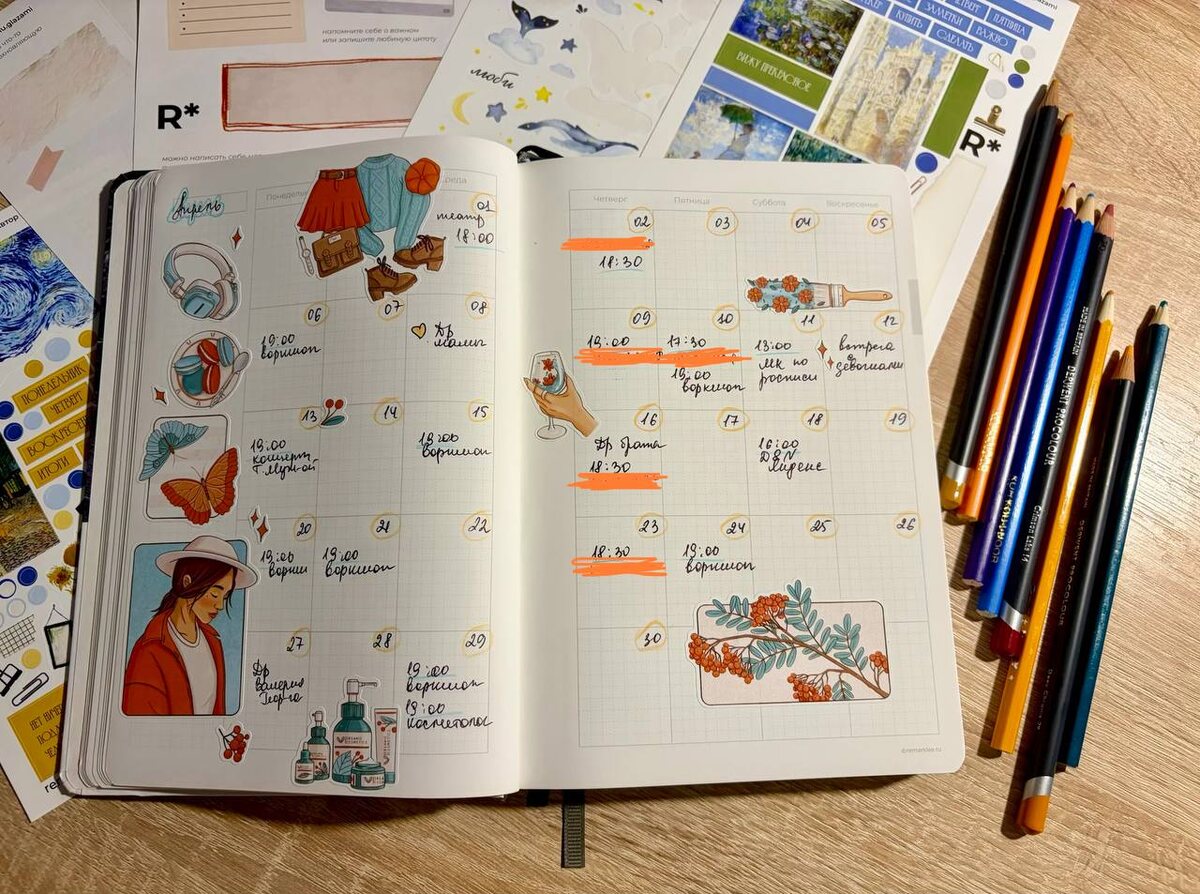 u.glazami
напомните себе о важном
или запишите любимую цитату
R*
люби
ЧЕТВЕРГ
ПЯТНИЦА
ЗАМЕТКИ
ВАЖНО
КУПИТЬ
СДЕЛАТЬ
ВИЖУ ПРЕКРАСНОЕ
R*
ПОНЕДЕЛЬНИК
ЧЕТВЕРГ
ВОСКРЕСЕНЬЕ
ИТОГИ
Апрель
Понедельник
Среда
01
театр
18:00
06
19:00
воркшоп
07
08
Др
мамы
13
19:00
концерт
14
15
19:00
воркшоп
20
19:00
воркш
21
19:00
воркшоп
22
27
Др
Валерия
28
29
19:00
воркшоп
19:00
косметолог
Четверг
Пятница
Суббота
Воскресенье
02
18:30
03
04
05
09
19:00
10
17:30
19:00
воркшоп
11
13:00
МК по
росписи
12
встреча
с девочками
16
Др брата
18:30
17
18
16:00
D&N
19
23
18:30
24
19:00
воркшоп
25
26
30
DERWENT PROCOLOUR